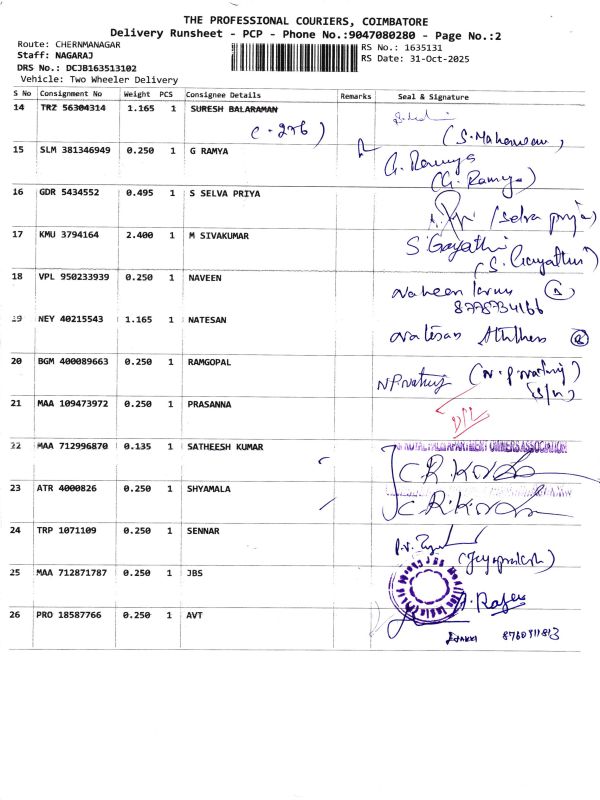 THE PROFESSIONAL COURIERS, COIMBATORE
Delivery Runsheet - PCP - Phone No.:9047080280 - Page No.:2
Route: CHERNMANAGAR
Staff: NAGARAJ
DRS No.: DCJB163513102
Vehicle: Two Wheeler Delivery
RS No.: 1635131
RS Date: 31-Oct-2025
S No Consignment No Weight PCS Consignee Details Remarks Seal & Signature
14 TRZ 56304314 1.165 1 SURESH BALARAMAN
15 SLM 381346949 0.250 1 G RAMYA G. Ramya
(G. Ramya)
16 GDR 5434552 0.495 1 S SELVA PRIYA (Selva priya)
17 KMU 3794164 2.400 1 M SIVAKUMAR S. Gayathri
(S. Gayathri)
18 VPL 950233939 0.250 1 NAVEEN Naveen
8778734166
19 NEY 40215543 1.165 1 NATESAN Natesan
20 BGM 400089663 0.250 1 RAMGOPAL
21 MAA 109473972 0.250 1 PRASANNA
22 MAA 712996870 0.135 1 SATHEESH KUMAR APARTMENT OWNERS ASSOCIATION
23 ATR 4000826 0.250 1 SHYAMALA
24 TRP 1071109 0.250 1 SENNAR (Jayaprakash)
25 MAA 712871787 0.250 1 JBS
26 PRO 18587766 0.250 1 AVT